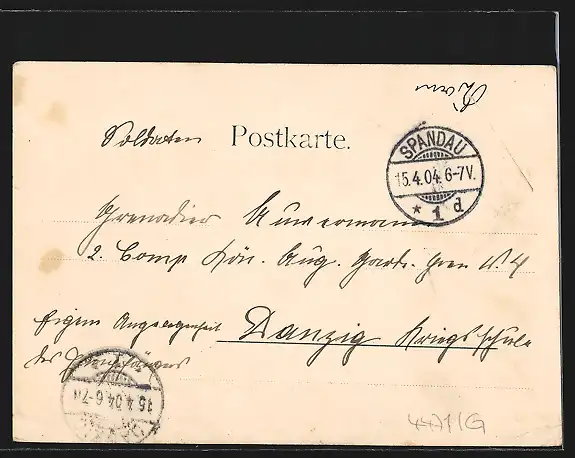 Soldaten Postkarte.
SPANDAU
15.4.04.6-7V.
* 1 d
Grenadier
2. Comp Kön. Aug. Garde. Gren N. 4
Eigene Angelegenheit Danzig Kriegsschule
des Empfängers
15.4.04.6-7N